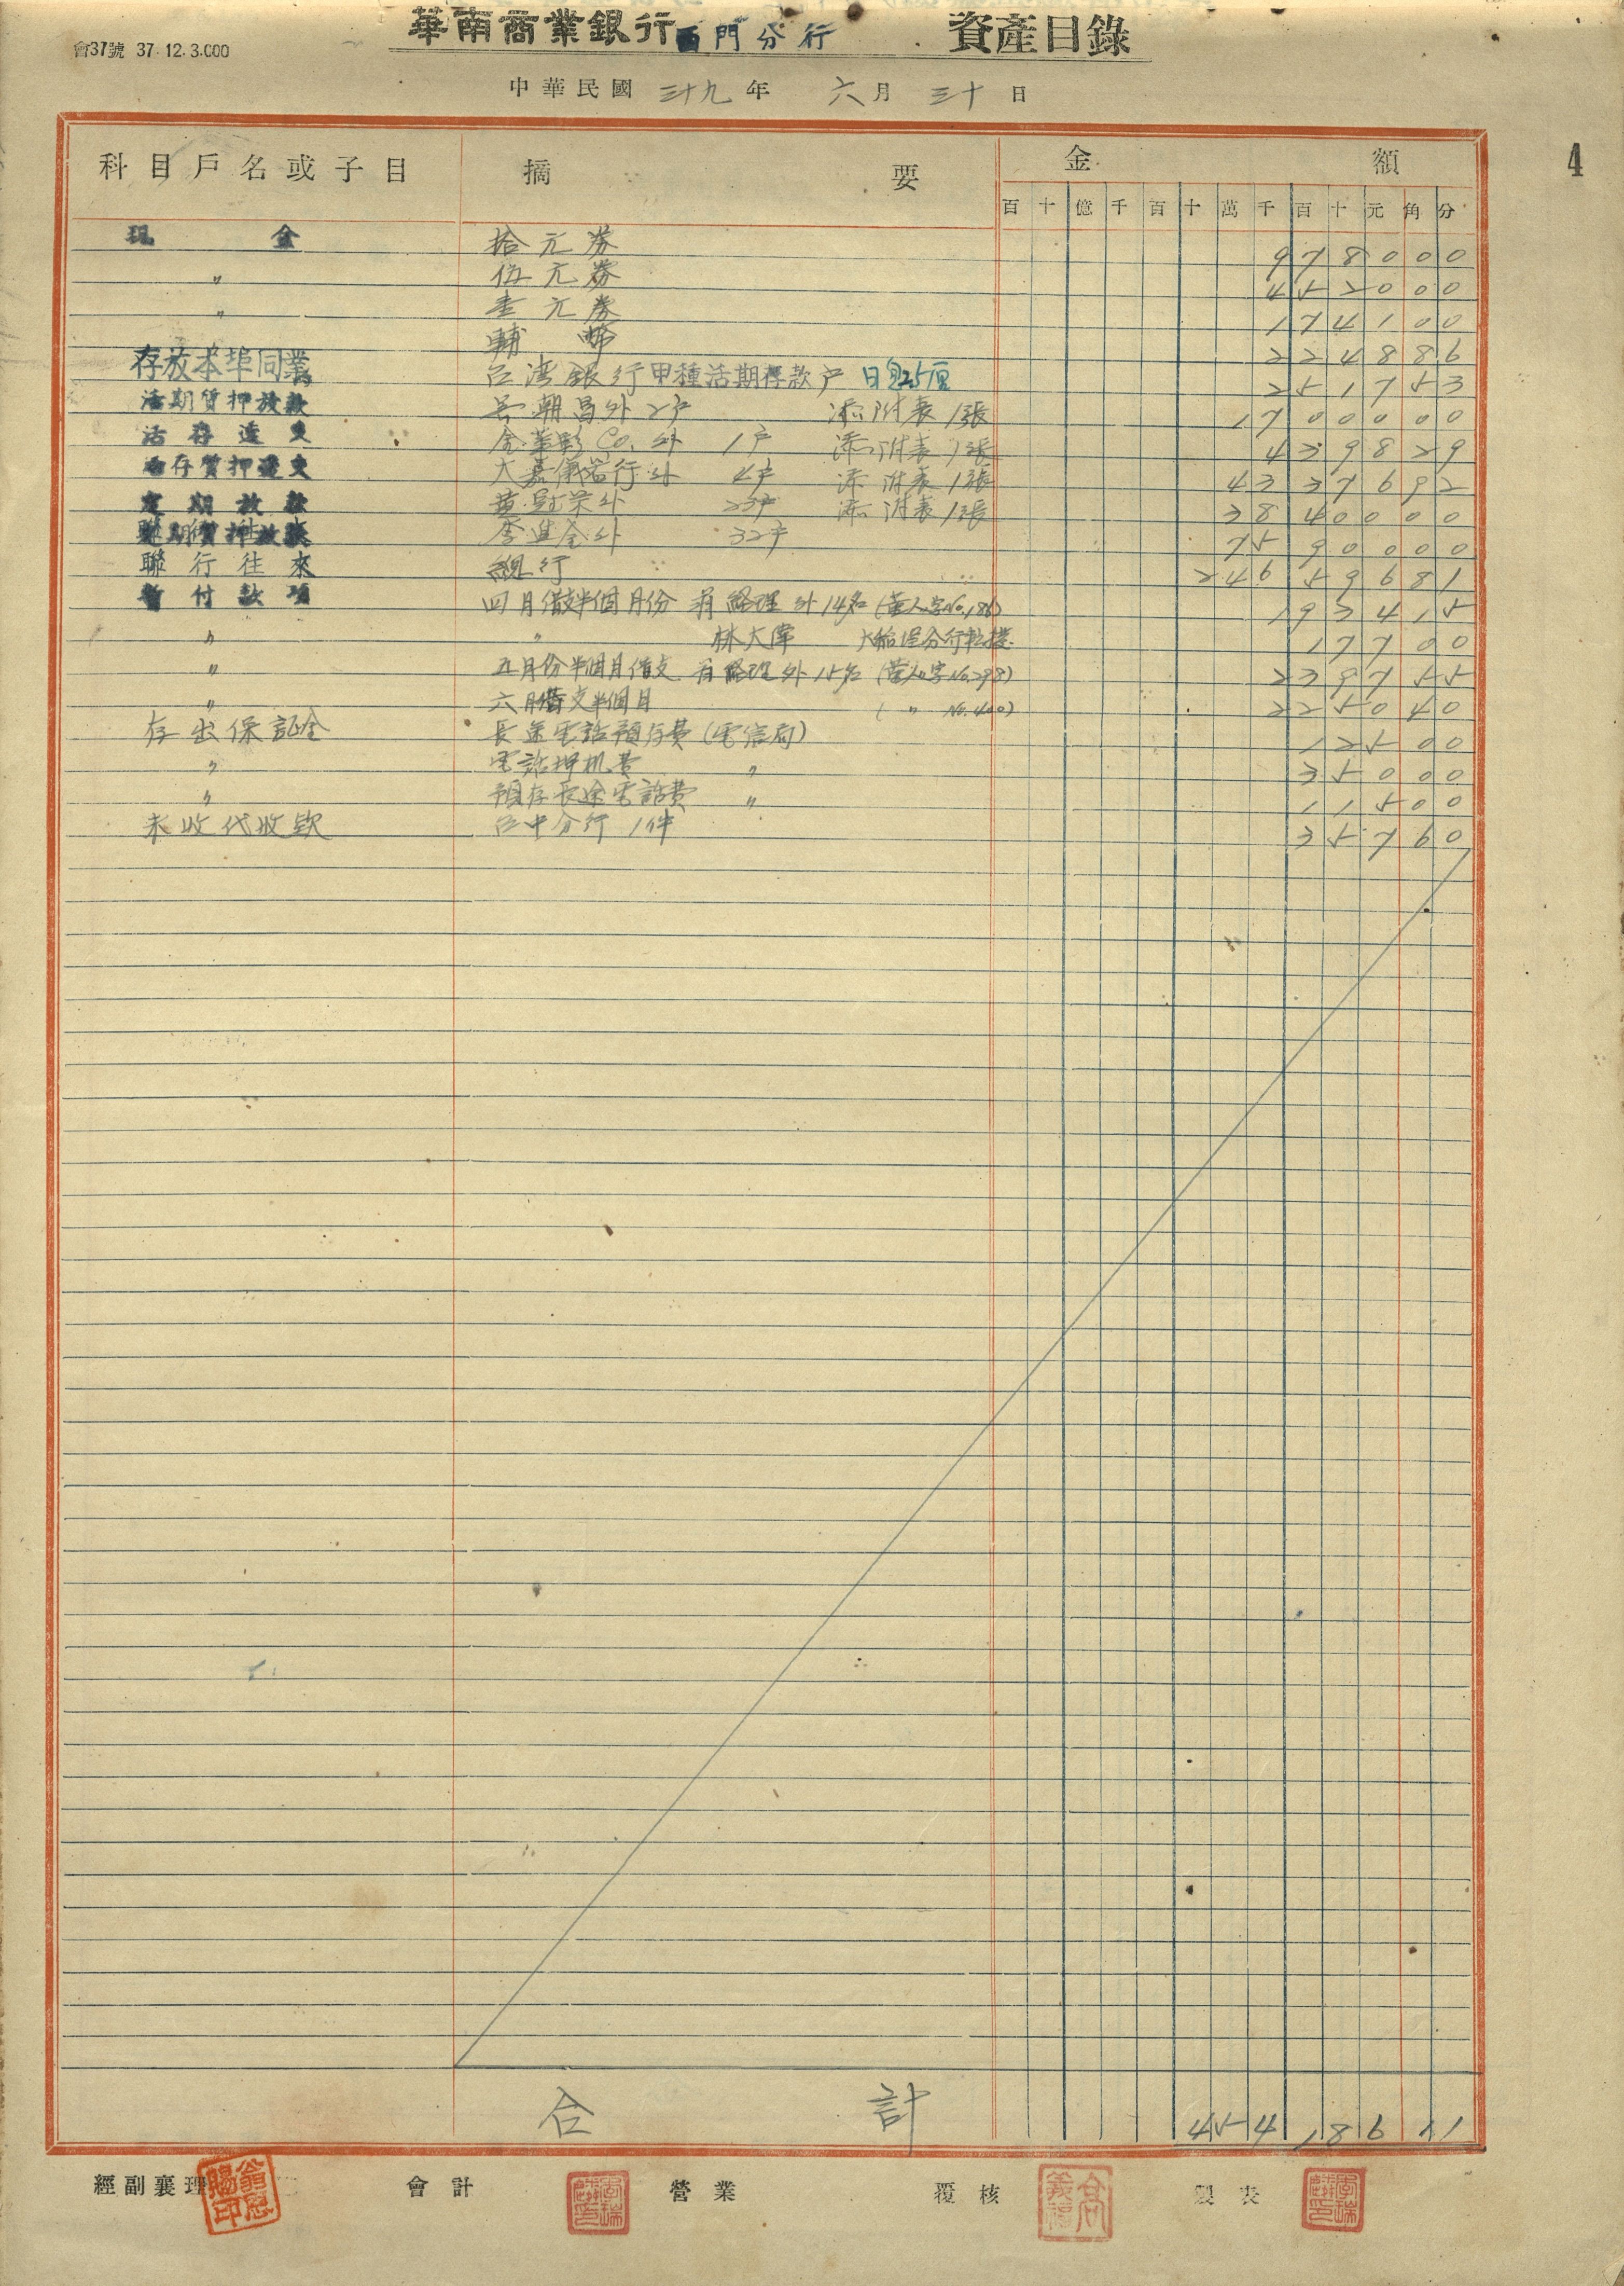 會37號 37.12.3.000
華南商業銀行西門分行 資產目錄
中華民國 三十九 年 六 月 三十 日
4
科目戶名或子目 摘要 金額
百 十 億 千 百 十 萬 千 百 十 元 角 分
現金 拾元券 9780 00
〃 伍元券 4520 00
〃 壹元券 1741 00
輔幣 2248 86
存放本埠同業 台湾銀行甲種活期存款户 日息25厘 2517 53
活期質押放款 吳朝昌外2户 添附表1張 17000 00
活存透支 金華影Co.外 1户 添附表1張 4398 29
活存質押透支 大嘉儀器行外 4户 添附表1張 43376 92
定期放款 黃冠荣外 23户 添附表1張 38400 00
定期質押放款 李進全外 32户 75900 00
聯行往來 總行 246596 81
暫付款項 四月借支半個月份 翁經理外14名 (董人字No.186) 1934 15
〃 〃 林大偉 大稻埕分行転接 177 00
〃 五月份半個月借支 翁經理外15名 (董人字No.298) 2397 55
〃 六月借支半個月 (〃 No.400) 2250 40
存出保証金 長途電話預存費(電信局) 125 00
〃 電話押机費 〃 350 00
〃 預存長途電話費 〃 115 00
未收代收款 台中分行 1件 357 60
合計 454186 11
經副襄理 會計 營業 覆核 製表
翁恩賜印
高義福